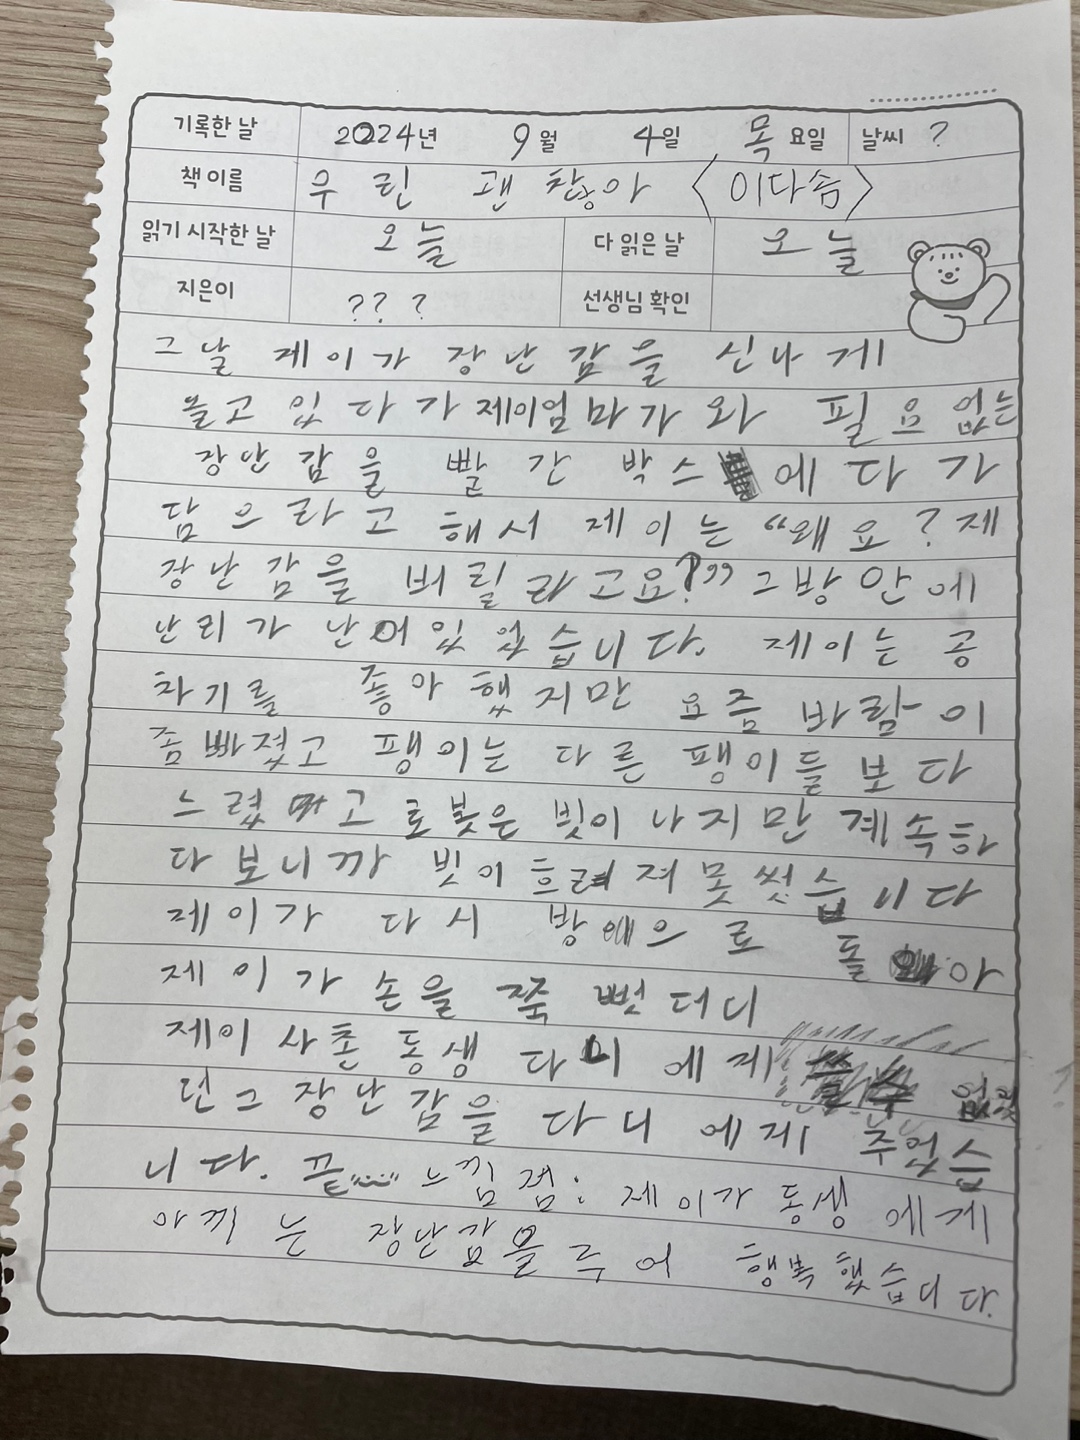 기록한 날 2024년 9월 4일 목요일 날씨 ?
책 이름 우린 괜찮아 <이다솜>
읽기 시작한 날 오늘 다 읽은 날 오늘
지은이 ??? 선생님 확인
그날 제이가 장난감을 신나게
놀고 있다가 제이엄마가 와 필요 없는
장난감을 빨간 박스에다가
담으라고 해서 제이는 "왜요? 제
장난감을 버릴라고요?" 그방안에
난리가 난어있었습니다. 제이는 공
차기를 좋아했지만 요즘 바람이
좀빠졌고 팽이는 다른 팽이들보다
느렸고 로봇은 빗이 나지만 계속하
다보니까 빗이 흐려져 못썼습니다
제이가 다시 방으로 돌아
제이가 손을 쭉 뻣더니
제이 사촌 동생 다니에게 없었
던 그 장난감을 다니에게 주었습
니다. 끝 느낌점: 제이가 동생에게
아끼는 장난감을 주어 행복했습니다.